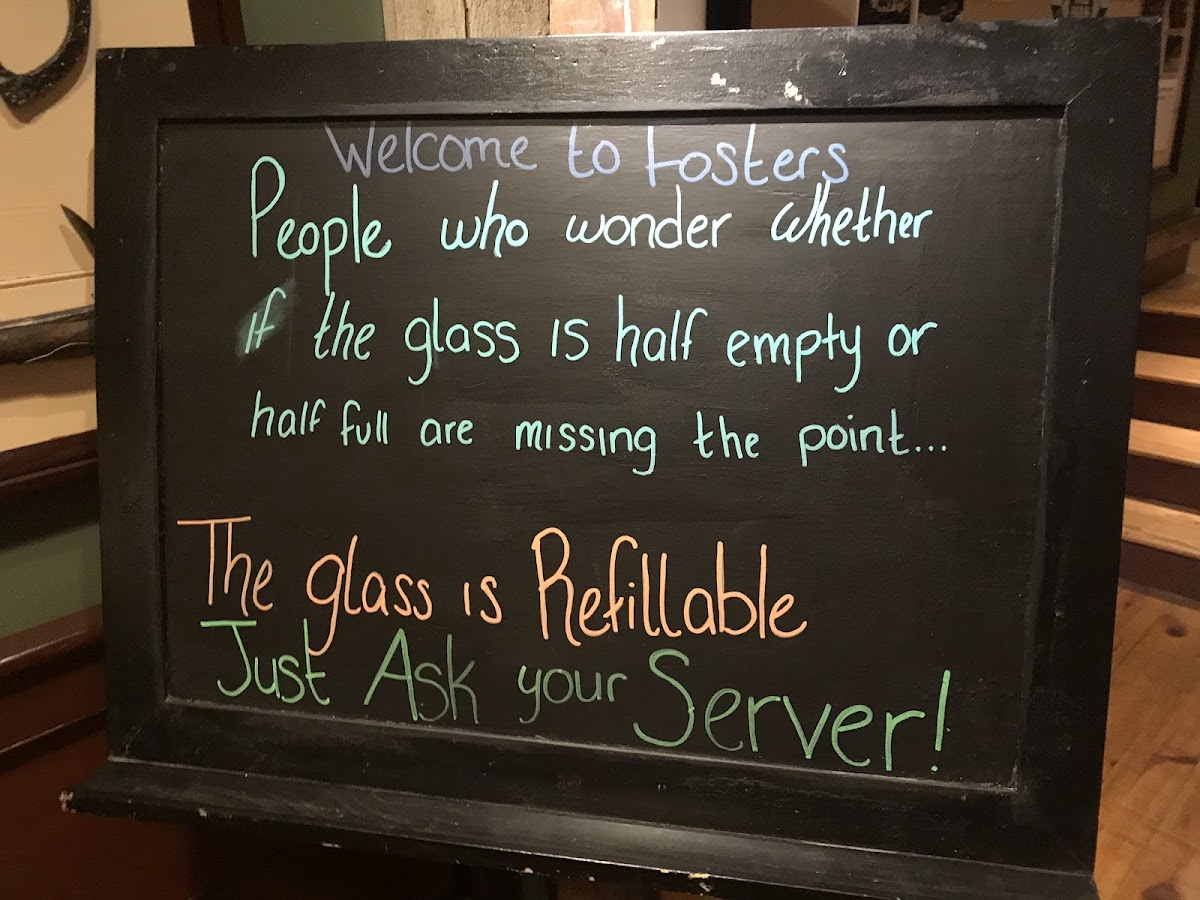 Welcome to Fosters
People who wonder whether
if the glass is half empty or
half full are missing the point...
The glass is Refillable
Just Ask your Server!